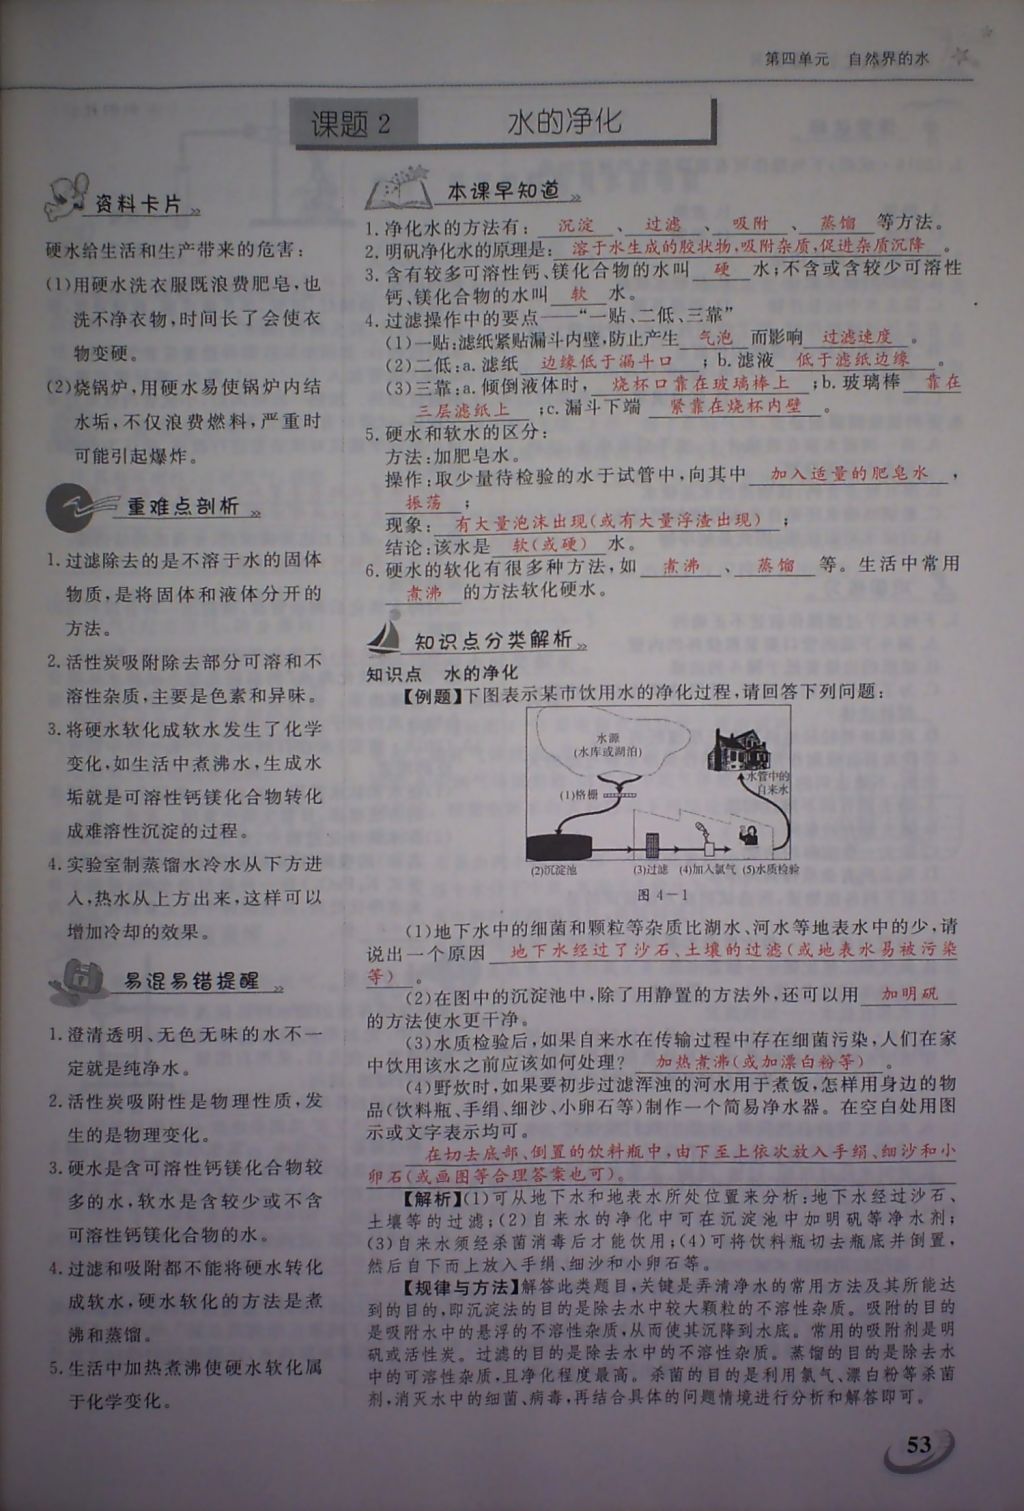 第四单元 自然界的水
课题2 水的净化
资料卡片
硬水给生活和生产带来的危害:
(1)用硬水洗衣服既浪费肥皂,也
洗不净衣物,时间长了会使衣
物变硬。
(2)烧锅炉,用硬水易使锅炉内结
水垢,不仅浪费燃料,严重时
可能引起爆炸。
重难点剖析
1.过滤除去的是不溶于水的固体
物质,是将固体和液体分开的
方法。
2.活性炭吸附除去部分可溶和不
溶性杂质,主要是色素和异味。
3.将硬水软化成软水发生了化学
变化,如生活中煮沸水,生成水
垢就是可溶性钙镁化合物转化
成难溶性沉淀的过程。
4.实验室制蒸馏水冷水从下方进
入,热水从上方出来,这样可以
增加冷却的效果。
易混易错提醒
1.澄清透明、无色无味的水不一
定就是纯净水。
2.活性炭吸附性是物理性质,发
生的是物理变化。
3.硬水是含可溶性钙镁化合物较
多的水,软水是含较少或不含
可溶性钙镁化合物的水。
4.过滤和吸附都不能将硬水转化
成软水,硬水软化的方法是煮
沸和蒸馏。
5.生活中加热煮沸使硬水软化属
于化学变化。
本课早知道
1.净化水的方法有: 沉淀 、 过滤 、 吸附 、 蒸馏 等方法。
2.明矾净化水的原理是: 溶于水生成的胶状物,吸附杂质,促进杂质沉降 。
3.含有较多可溶性钙、镁化合物的水叫 硬 水;不含或含较少可溶性
钙、镁化合物的水叫 软 水。
4.过滤操作中的要点——“一贴、二低、三靠”
(1)一贴:滤纸紧贴漏斗内壁,防止产生 气泡 而影响 过滤速度 。
(2)二低:a.滤纸 边缘低于漏斗口 ;b.滤液 低于滤纸边缘 。
(3)三靠:a.倾倒液体时, 烧杯口靠在玻璃棒上 ;b.玻璃棒 靠在
三层滤纸上 ;c.漏斗下端 紧靠在烧杯内壁 。
5.硬水和软水的区分:
方法:加肥皂水。
操作:取少量待检验的水于试管中,向其中 加入适量的肥皂水 ,
振荡 ;
现象: 有大量泡沫出现(或有大量浮渣出现) ;
结论:该水是 软(或硬) 水。
6.硬水的软化有很多种方法,如 煮沸 、 蒸馏 等。生活中常用
煮沸 的方法软化硬水。
知识点分类解析
知识点 水的净化
【例题】下图表示某市饮用水的净化过程,请回答下列问题:
水源
(水库或湖泊)
(1)格栅
水管中的
自来水
(2)沉淀池 (3)过滤 (4)加入氯气 (5)水质检验
图4-1
(1)地下水中的细菌和颗粒等杂质比湖水、河水等地表水中的少,请
说出一个原因 地下水经过了沙石、土壤的过滤(或地表水易被污染
等) 。
(2)在图中的沉淀池中,除了用静置的方法外,还可以用 加明矾
的方法使水更干净。
(3)水质检验后,如果自来水在传输过程中存在细菌污染,人们在家
中饮用该水之前应该如何处理? 加热煮沸(或加漂白粉等) 。
(4)野炊时,如果要初步过滤浑浊的河水用于煮饭,怎样用身边的物
品(饮料瓶、手绢、细沙、小卵石等)制作一个简易净水器。在空白处用图
示或文字表示均可。
在切去底部、倒置的饮料瓶中,由下至上依次放入手绢、细沙和小
卵石(或画图等合理答案也可)。
【解析】(1)可从地下水和地表水所处位置来分析:地下水经过沙石、
土壤等的过滤;(2)自来水的净化中可在沉淀池中加明矾等净水剂;
(3)自来水须经杀菌消毒后才能饮用;(4)可将饮料瓶切去瓶底并倒置,
然后自下而上放入手绢、细沙和小卵石等。
【规律与方法】解答此类题目,关键是弄清净水的常用方法及其所能达
到的目的,即沉淀法的目的是除去水中较大颗粒的不溶性杂质。吸附的目的
是吸附水中的悬浮的不溶性杂质,从而使其沉降到水底。常用的吸附剂是明
矾或活性炭。过滤的目的是除去水中的不溶性杂质。蒸馏的目的是除去水
中的可溶性杂质,且净化程度最高。杀菌的目的是利用氯气、漂白粉等杀菌
剂,消灭水中的细菌、病毒,再结合具体的问题情境进行分析和解答即可。
53